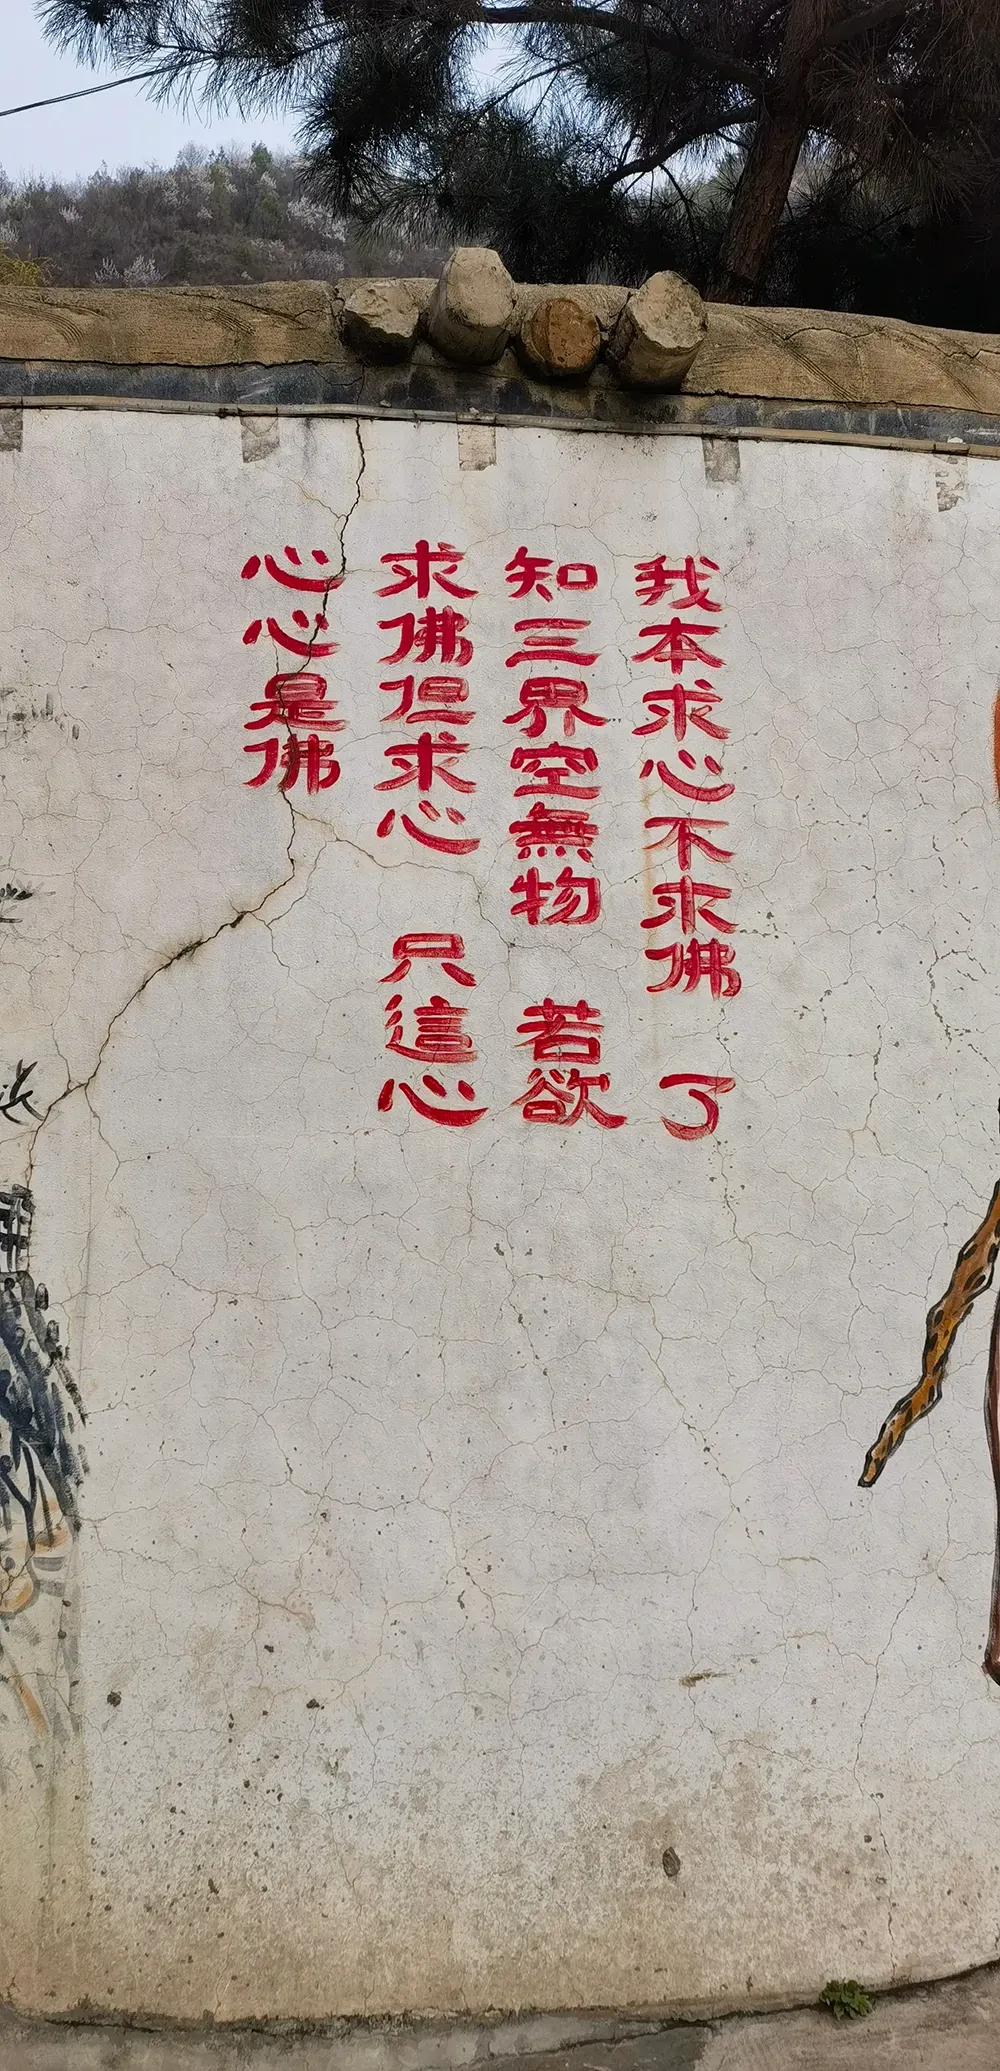 我本求心不求佛 了
知三界空無物 若欲
求佛但求心 只這心
心心是佛